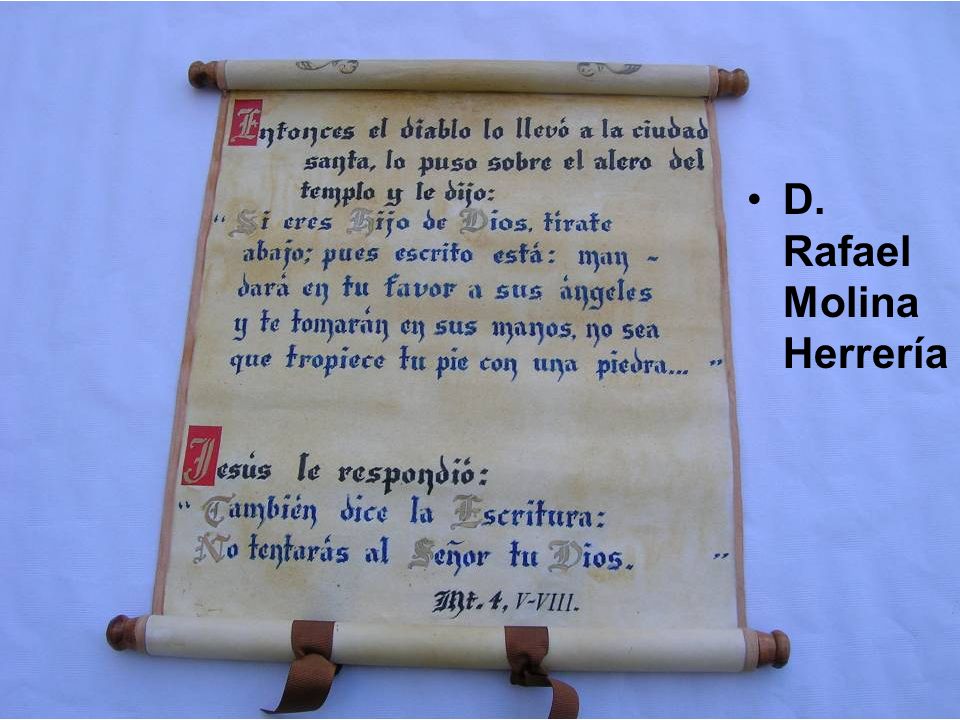 Entonces el diablo lo llevó a la ciudad
santa, lo puso sobre el alero del
templo y le dijo:
“Si eres Hijo de Dios, tírate
abajo; pues escrito está: man -
dará en tu favor a sus ángeles
y te tomarán en sus manos, no sea
que tropiece tu pie con una piedra... ”
Jesús le respondió:
“También dice la Escritura:
No tentarás al Señor tu Dios. ”
Mt. 4, V-VIII.
• D.
Rafael
Molina
Herrería